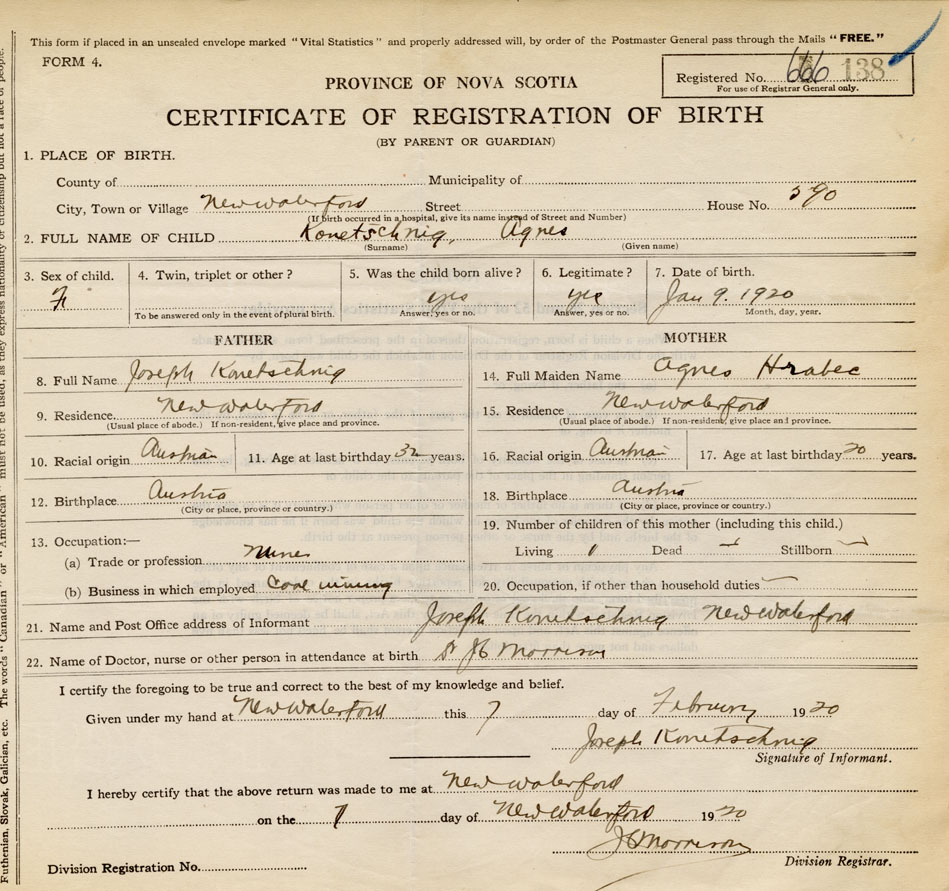 This form if placed in an unsealed envelope marked "Vital Statistics" and properly addressed will, by order of the Postmaster General pass through the Mails "FREE."
FORM 4.
Registered No. 666 138
For use of Registrar General only.
PROVINCE OF NOVA SCOTIA
CERTIFICATE OF REGISTRATION OF BIRTH
(BY PARENT OR GUARDIAN)
1. PLACE OF BIRTH.
County of Municipality of
City, Town or Village New Waterford Street House No. 590
(If birth occurred in a hospital, give its name instead of Street and Number)
2. FULL NAME OF CHILD Konetschnig, Agnes
(Surname) (Given name)
3. Sex of child. 4. Twin, triplet or other? 5. Was the child born alive? 6. Legitimate? 7. Date of birth.
F yes yes Jan 9. 1920
To be answered only in the event of plural birth. Answer, yes or no. Answer, yes or no. Month, day, year.
FATHER MOTHER
8. Full Name Joseph Konetschnig 14. Full Maiden Name Agnes Hrabec
9. Residence New Waterford 15. Residence New Waterford
(Usual place of abode.) If non-resident, give place and province. (Usual place of abode.) If non-resident, give place and province.
10. Racial origin Austrian 11. Age at last birthday 32 years. 16. Racial origin Austrian 17. Age at last birthday 20 years.
12. Birthplace Austria 18. Birthplace Austria
(City or place, province or country.) (City or place, province or country.)
13. Occupation:— 19. Number of children of this mother (including this child.)
(a) Trade or profession Living 1 Dead — Stillborn —
(b) Business in which employed Coal mining 20. Occupation, if other than household duties —
21. Name and Post Office address of Informant Joseph Konetschnig New Waterford
22. Name of Doctor, nurse or other person in attendance at birth Dr Morrison
I certify the foregoing to be true and correct to the best of my knowledge and belief.
Given under my hand at New Waterford this 7 day of February 1920
Joseph Konetschnig
Signature of Informant.
I hereby certify that the above return was made to me at New Waterford
on the 7 day of New Waterford 1920
Morrison
Division Registrar.
Division Registration No.
Futhenian, Slovak, Galician, etc. The words "Canadian" or "American" must not be used, as they express nationality or citizenship but not a race of people.